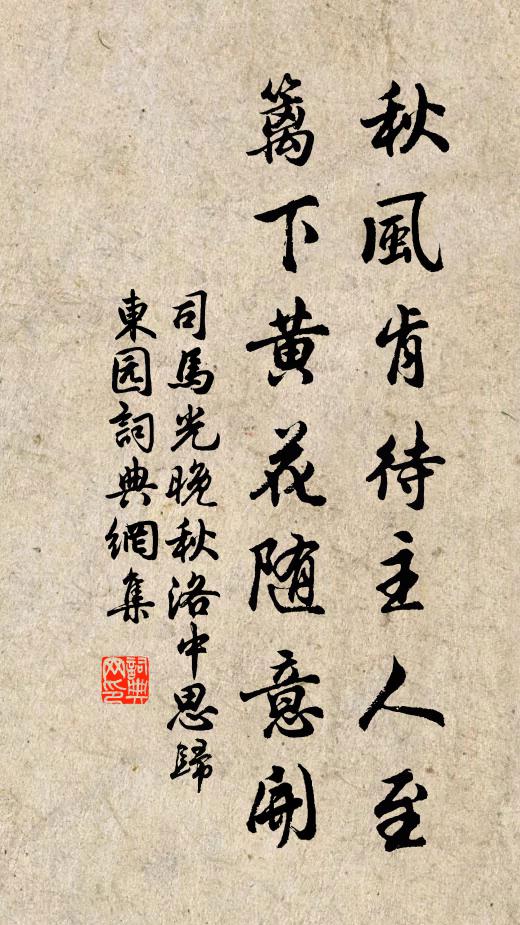 秋風肯待主人至
籬下黄花随意開
司馬光晚秋洛中思歸
東园詞典網集
詞典网印